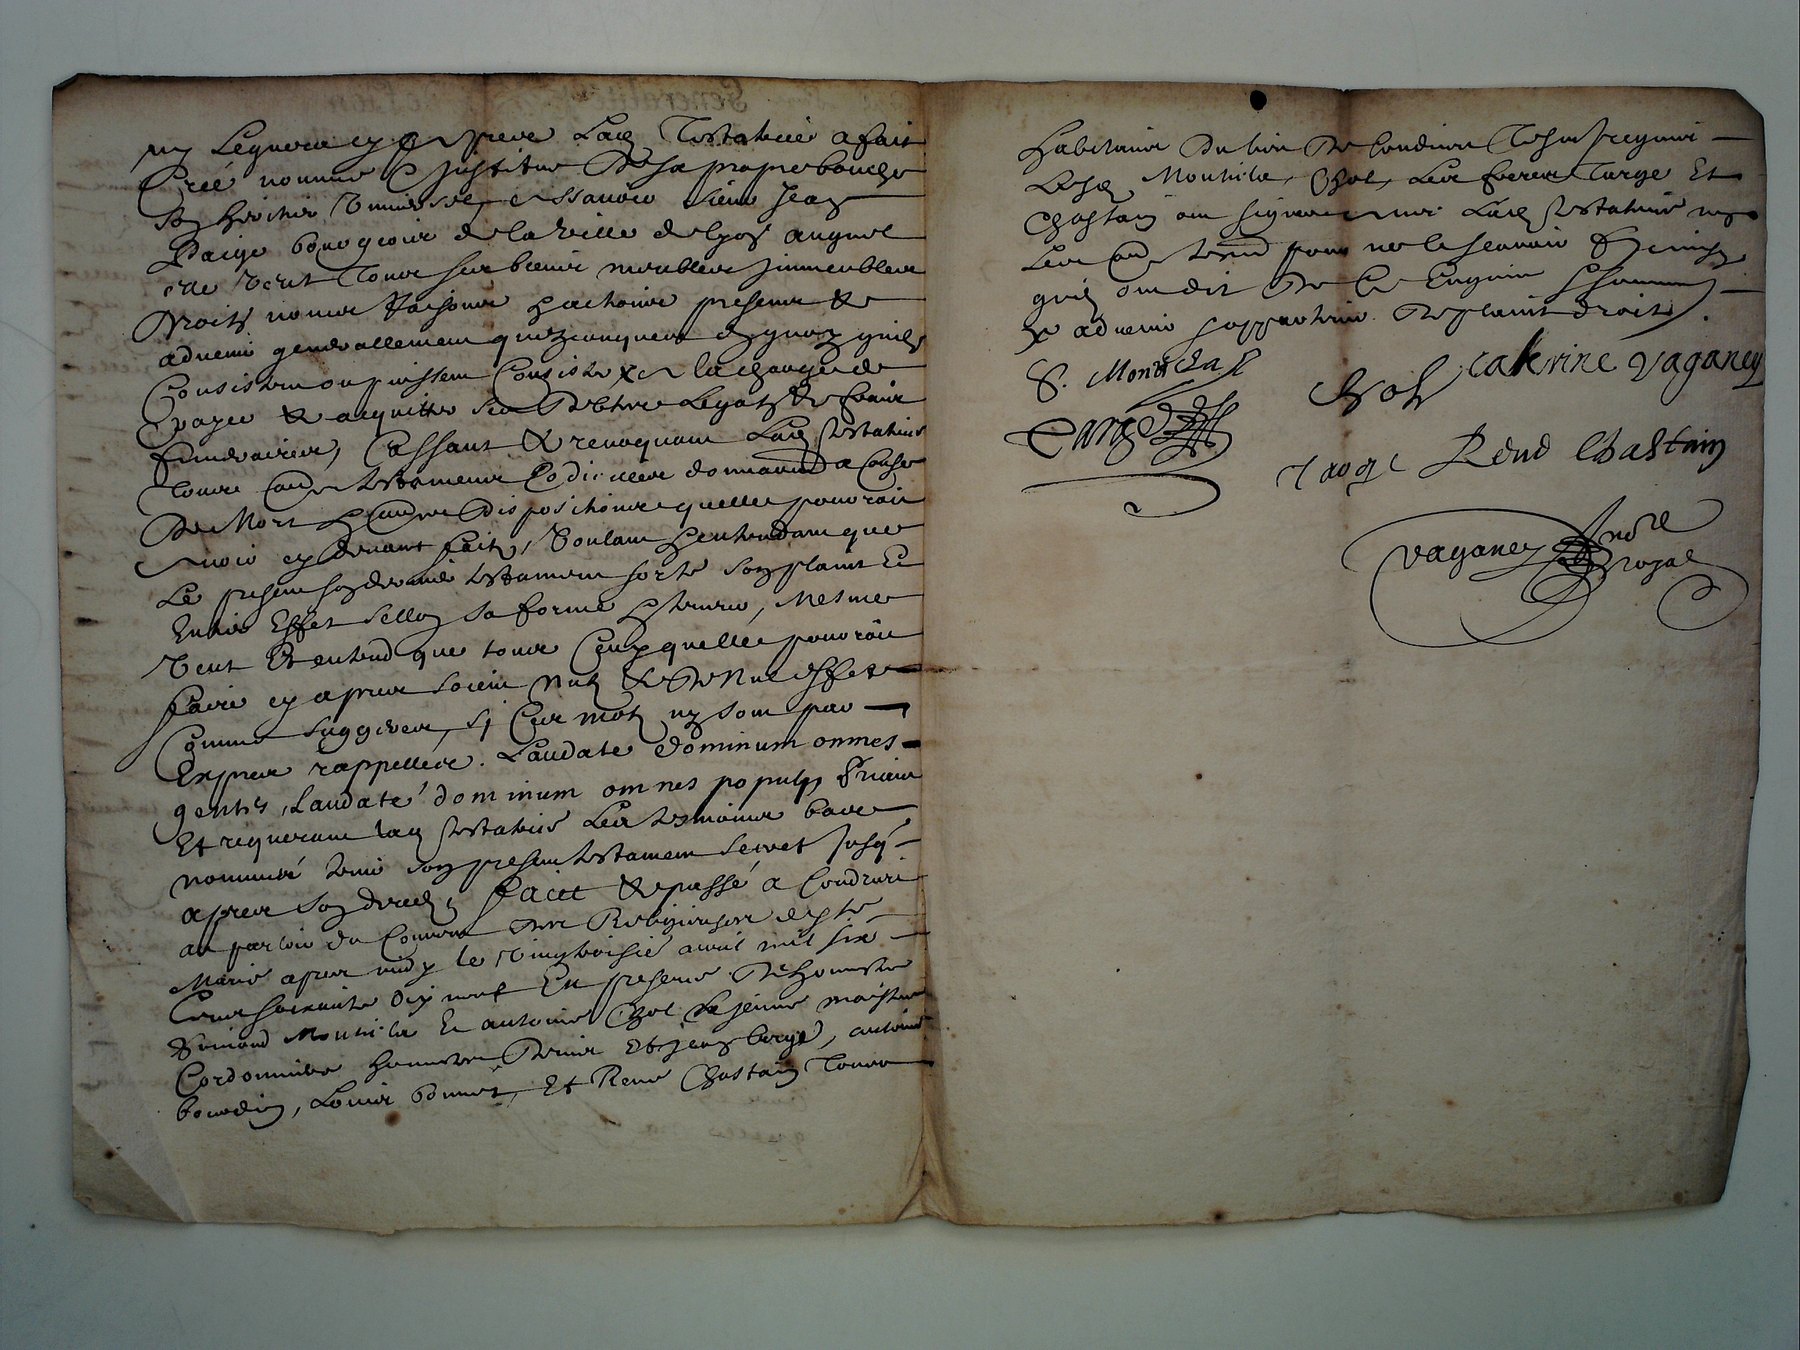 ny Legueré cy apres Lad Testatrice a fait
Créé nommé & Institué De sa propre bouche
son heritier Universel assavoir sieur Jean
Paige bourgeois de la Ville de Lyon auquel
elle veut tous ses biens meubles immeubles
Droits noms Raisons & actions presens &
advenir generallement quelzconques en quoy quils
Consistent ou puissent Consister & a la charge de
payer & acquitter ses Debtes Legatz & fraix
funeraires, Cassant & revoquant Lad Testatrice
Tous autres testamens Codicilles donnations a Cause
De Mort & autres Dispositions quelle pourroit
avoir cy devant faits, Voulant & entendant que
Le present son dernier testament sorte son plain Et
Entier Effet sellon sa forme & teneur, Mesme
Veut Et entend que tous Ceux quelle pourroit
faire cy apres soient Nulz & De Nul effet
Comme suggerez, si Ces motz ny sont par
Exprez rappellés. Laudate dominum omnes
gentes, Laudate dominum omnes populy Priant
Et requerant lad Testatrice Les tesmoins bas
nommés tenir son present testament secret Jusq
apres son deced, Faict & passé a Condrieu
au parloir du Couvent des Religieuses de Ste
Marie apres midy le Vingtroisie avril mil six
Cens soixante dix neuf En presence De honneste
Simond Montelier Et antoine Chol Le jeune maistre
Cordonnier honneste Denis Et jean barge, antoine
bourdin, Louis bonnet, Et René Chastain Tous
habitans Du lieu De Condrieu Tesmoins requis
Lesd Montelier, Chol, Les freres Targe Et
Chastain ont signé avec Lad Testatrice non
Les autres tesmoins pour ne le scavoir Ainsy
quils ont dit De Ce Enquis & sommés
& advenir & appartenir De plain droit.
S. Montelier
Chol Caterine Vaganey
Targe
Targe René Chastain
Vaganey Nore
royal